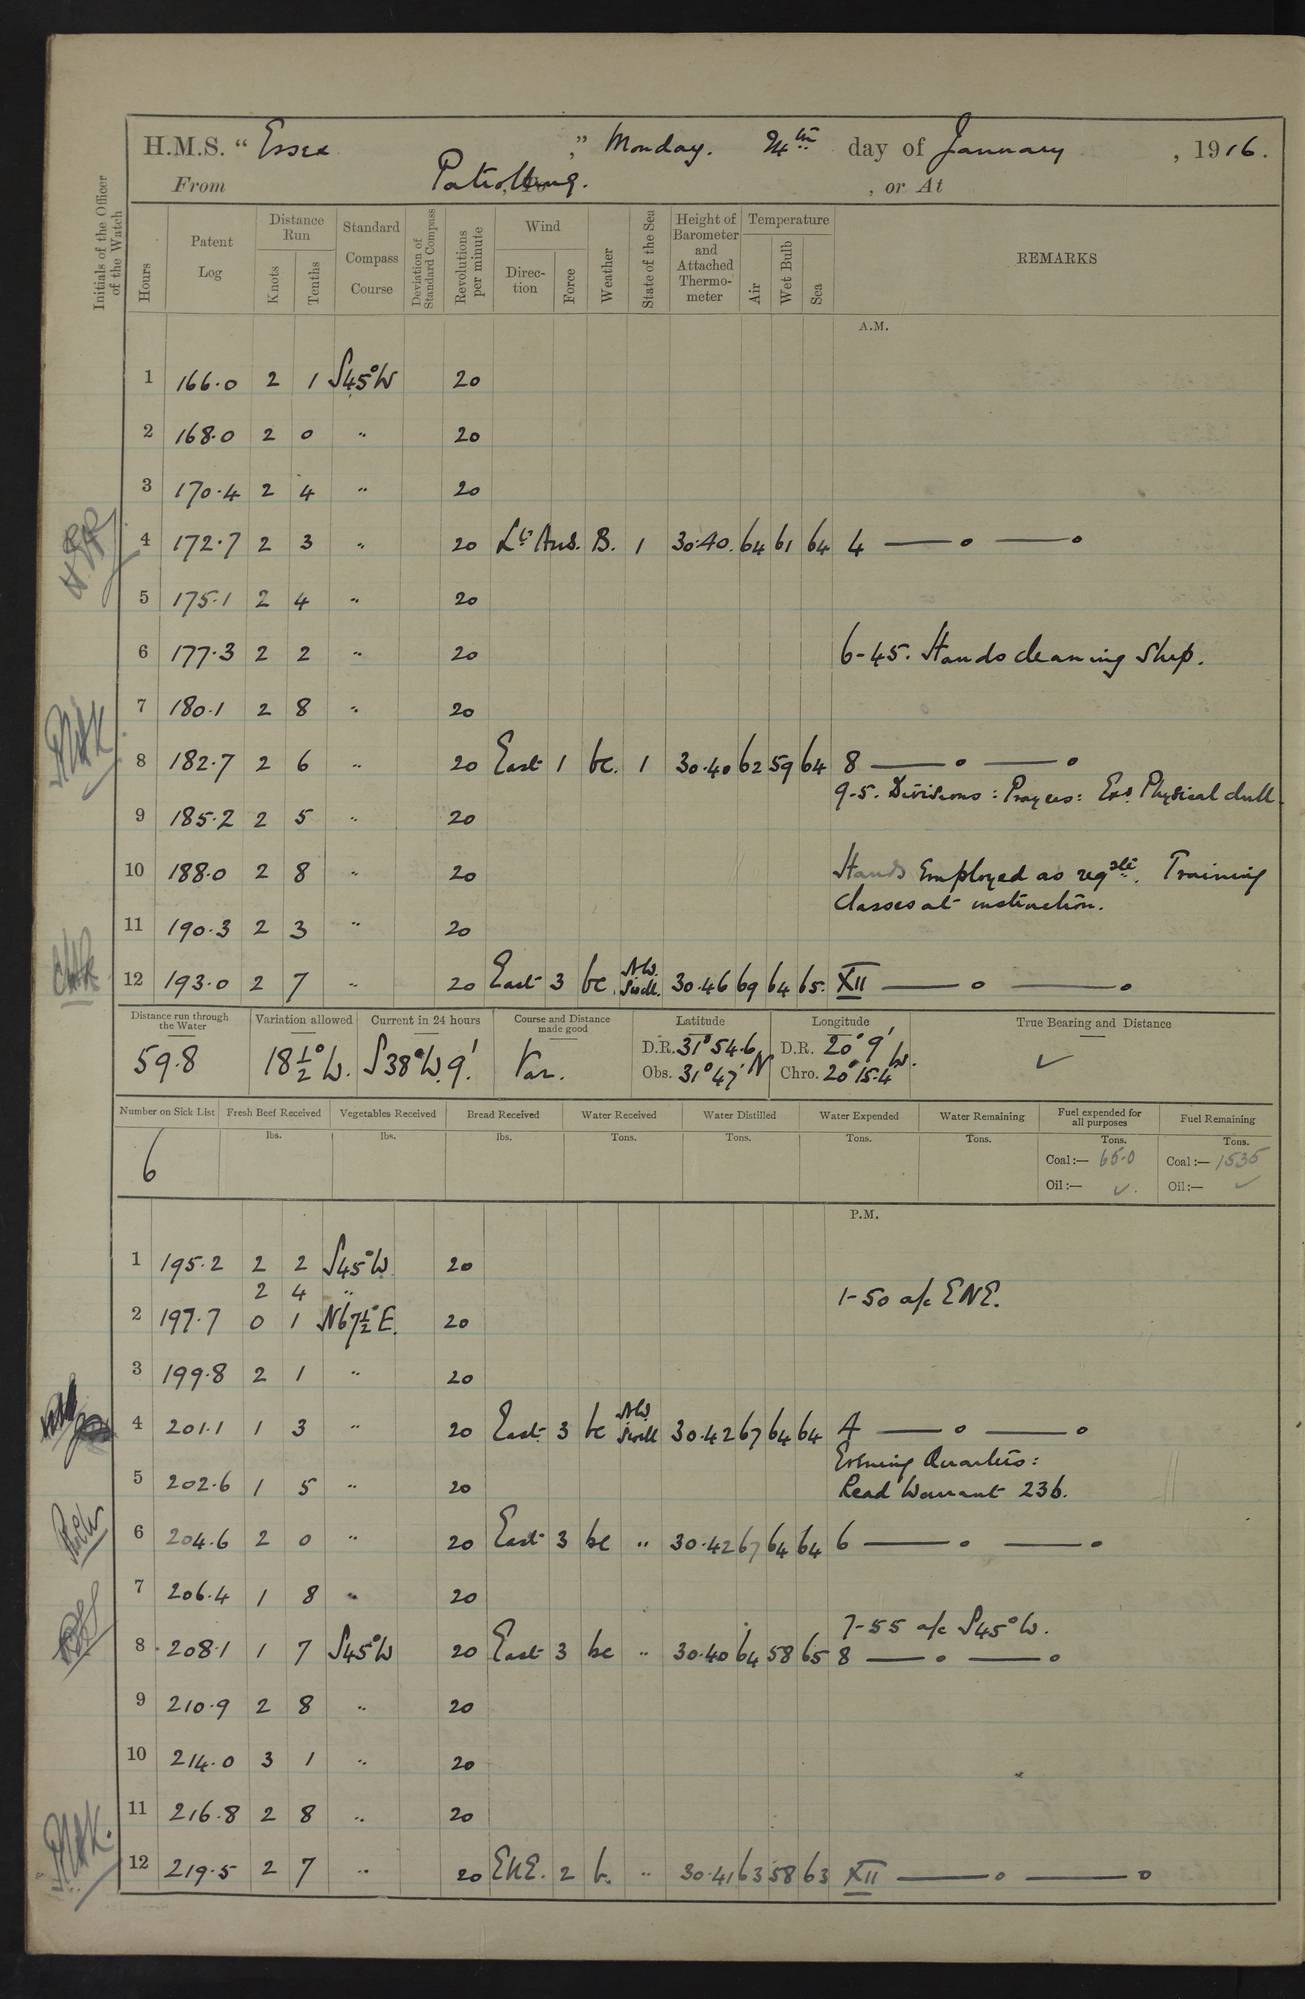 H.M.S. “ Essex ,” Monday. 24th day of January , 1916.
From Patrolling. , or At
Initials of the Officer of the Watch
Hours
Patent Log
Distance Run
Knots
Tenths
Standard Compass Course
Deviation of Standard Compass
Revolutions per minute
Wind
Direc-tion
Force
Weather
State of the Sea
Height of Barometer and Attached Thermo-meter
Temperature
Air
Wet Bulb
Sea
REMARKS
A.M.
1 166.0 2 1 S45°W 20
2 168.0 2 0 " 20
3 170.4 2 4 " 20
4 172.7 2 3 " 20 Lt Airs. B. 1 30.40. 64 61 64 4 — o — o
5 175.1 2 4 " 20
6 177.3 2 2 " 20 6-45. Hands cleaning Ship.
7 180.1 2 8 " 20
8 182.7 2 6 " 20 East 1 bc. 1 30.40 62 59 64 8 — o — o
9-5. Divisions: Prayers: Exd Physical drill.
9 185.2 2 5 " 20
10 188.0 2 8 " 20 Hands Employed as reqsite. Training
classes at instruction.
11 190.3 2 3 " 20
12 193.0 2 7 " 20 East 3 bc. NW. Swell. 30.46 69 64 65. XII — o — o
Distance run through the Water
59.8
Variation allowed
18½° W.
Current in 24 hours
S38°W. 9'.
Course and Distance made good
Var.
Latitude
D.R. 31° 54.6
Obs. 31° 47' N
Longitude
D.R. 20° 9' W.
Chro. 20° 15.4'
True Bearing and Distance
✓
Number on Sick List
6
Fresh Beef Received
lbs.
Vegetables Received
lbs.
Bread Received
lbs.
Water Received
Tons.
Water Distilled
Tons.
Water Expended
Tons.
Water Remaining
Tons.
Fuel expended for all purposes
Tons.
Coal:— 65.0
Oil:— ✓.
Fuel Remaining
Tons.
Coal:— 1535
Oil:— ✓
P.M.
1 195.2 2 2 S45°W. 20
2 4 " 1-50 a/c ENE.
2 197.7 0 1 N67½°E. 20
3 199.8 2 1 " 20
4 201.1 1 3 " 20 East. 3 bc NW. Swell 30.42 67 64 64 4 — o — o
Evening Quarters:
5 202.6 1 5 " 20 Read Warrant 236.
6 204.6 2 0 " 20 East 3 bc " 30.42 67 64 64 6 — o — o
7 206.4 1 8 " 20
7-55 a/c S45°W.
8 208.1 1 7 S45°W 20 East 3 bc " 30.40 64 58 65 8 — o — o
9 210.9 2 8 " 20
10 214.0 3 1 " 20
11 216.8 2 8 " 20
12 219.5 2 7 " 20 ENE. 2 b. " 30.41 63 58 63 XII — o — o